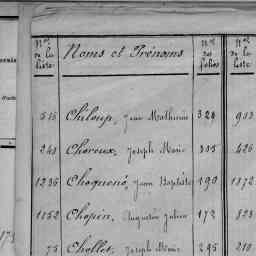 Nos de la liste Noms et Prénoms Nos des folios Nos de la liste
516 Chiloup, Jean Mathurin 324 903
240 Choreux, Joseph Marie 305 426
1236 Choquené, Jean Baptiste 190 1372
1152 Chopin, Augustin Julien 172 823
75 Chollet, Joseph Marie 295 210